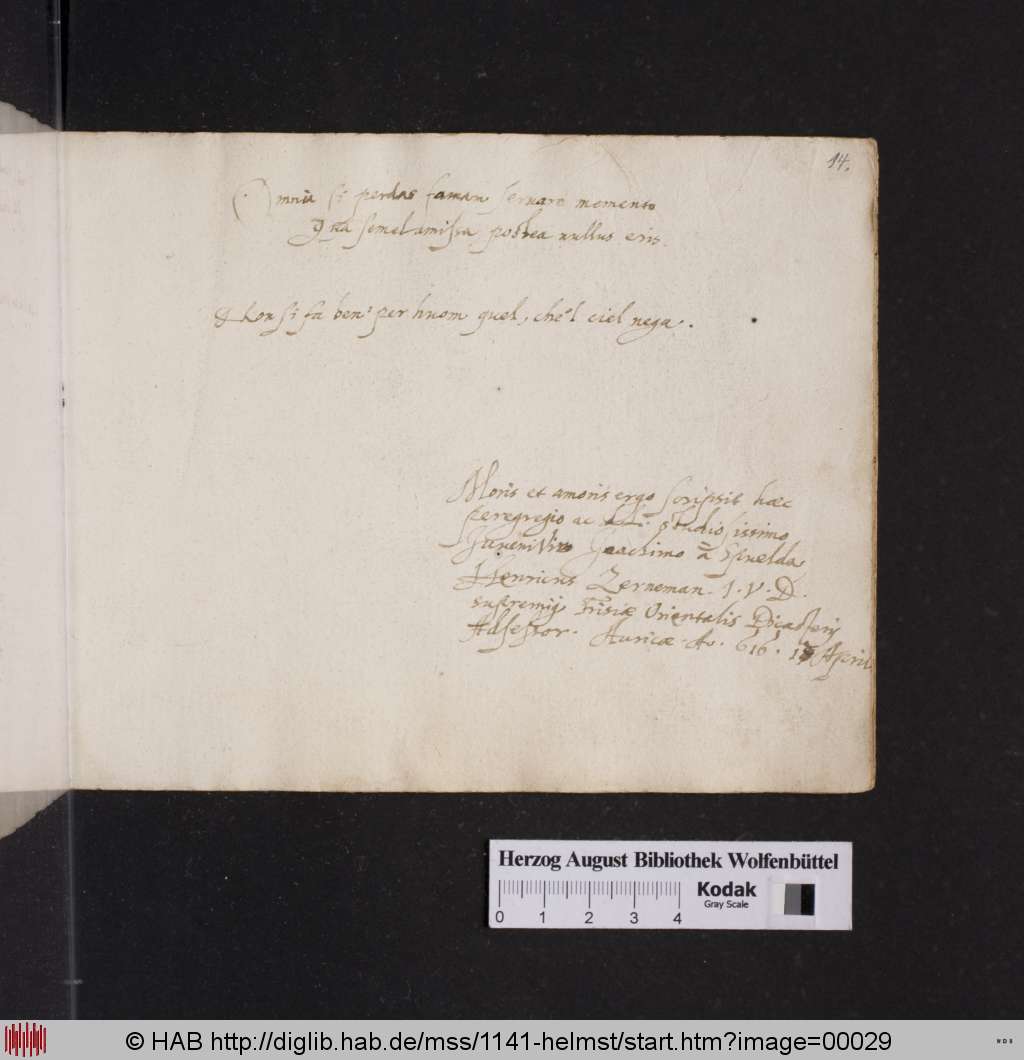 14.
Omnia si perdas famam servare memento
Qua semel amissa postea nullus eris.
Non si fa ben' per huom quel, che'l ciel nega.
Moris et amoris ergo scripsit haec
peregregio ac studiosissimo
Juveni Viro Joachimo à
Henricus Zerneman. I. V. D.
supremij Frisiæ Orientalis Dicasterij
Adsessor. Auricæ. Ao. 616. April
Herzog August Bibliothek Wolfenbüttel
Kodak
Gray Scale
0 1 2 3 4
© HAB http://diglib.hab.de/mss/1141-helmst/start.htm?image=00029